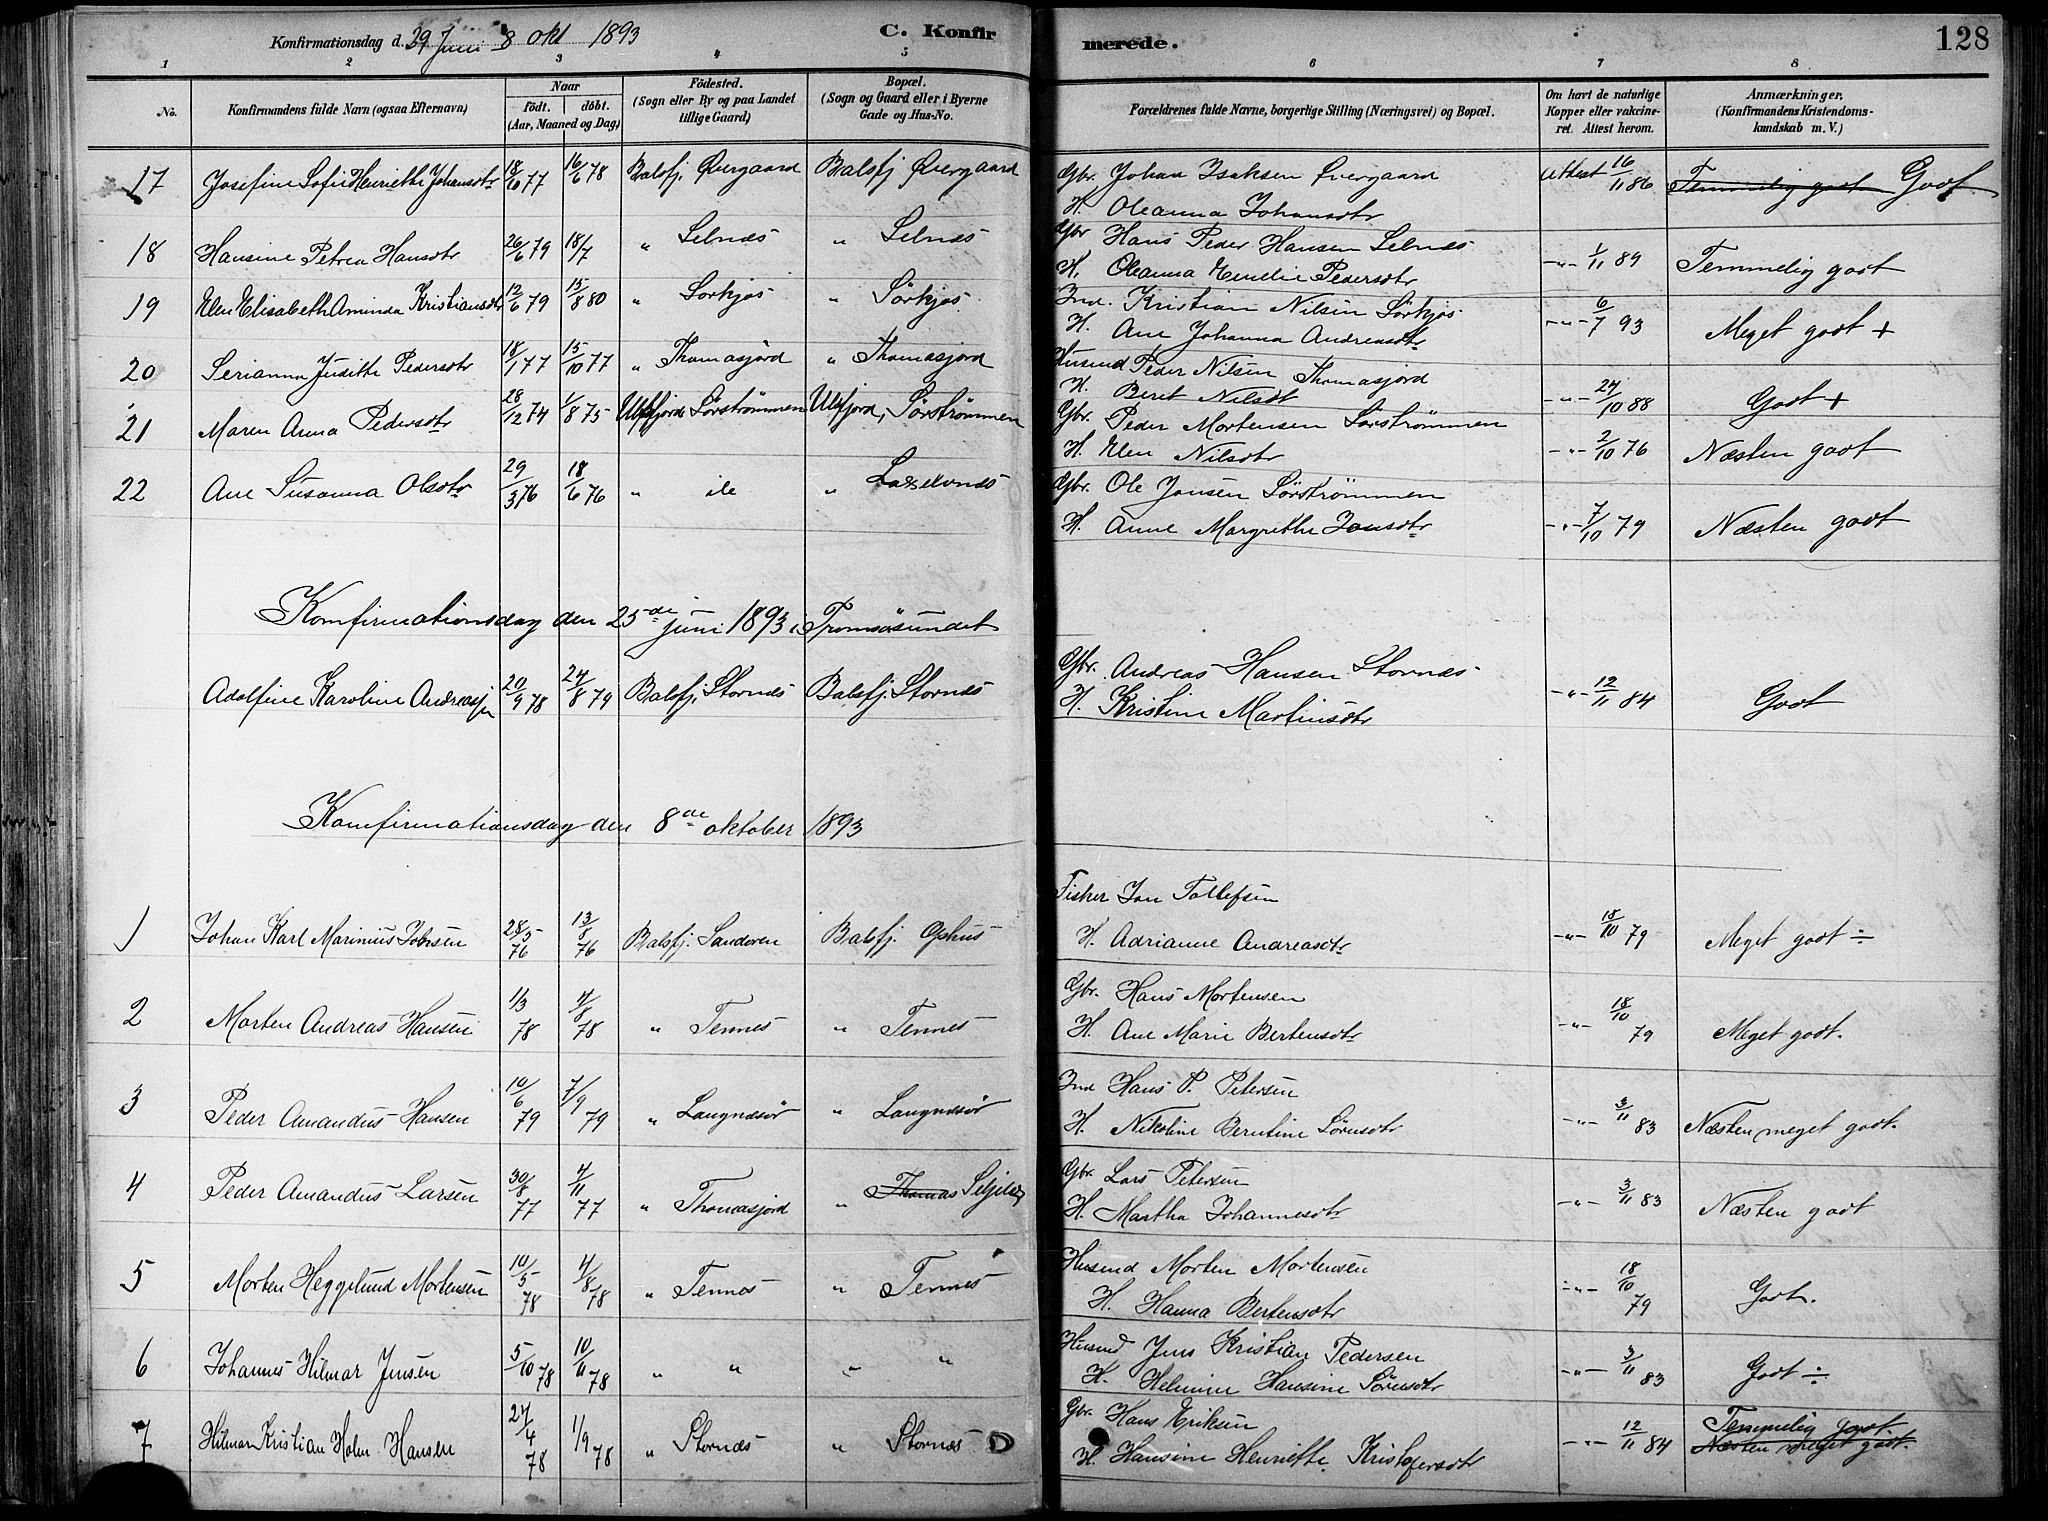 Konfirmationsdag d. 29 Juni 8 okt 1893 C. Konfirmerede. 128
1 2 3 4 5 6 7 8
No. Konfirmandens fulde Navn (ogsaa Efternavn) Naar födt. döbt. (Aar, Maaned og Dag) Födested. (Sogn eller By og paa Landet tillige Gaard) Bopæl. (Sogn og Gaard eller i Byerne Gade og Hus-No. Forældrenes fulde Navne, borgerlige Stilling (Næringsvei) og Bopæl. Om havt de naturlige Kopper eller vakcineret. Attest herom. Anmærkninger. (Konfirmandens Kristendomskundskab m. V.)
17 Josefine Sofie Henriette Johansdtr 18/10 77 16/6 78 Balsfj. Övergaard Balsfj Övergaard Gbr. Johan Isaksen Övergaard Attest 16/11 86 Temmelig godt Godt
H. Oleanna Johansdtr
18 Hansine Petrea Hansdtr 26/6 79 18/7 " Selnæs " Selnæs Gbr Hans Peder Hansen Selnæs -"- 1/11 89 Temmelig godt
H. Oleanna Emelie Pedersdtr
19 Elen Elisabeth Aminda Kristiansdtr 12/6 79 15/8 80 " Sörkjos " Sörkjos. Ind. Kristian Nilsen Sörkjos. -"- 6/7 93 Meget godt +
H. Ane Johanna Andreasdtr
20 Serianna Juditte Pedersdtr 18/1 77 15/10 77 " Thomasjord " Thomasjord Husmd Peder Nilsen Thomasjord -"- 24/10 88 Godt +
H. Beret Nilsdt
21 Maren Anna Pedersdtr 28/12 74 1/8 75 Ulsfjord Sörströmmen Ulsfjord, Sörströmmen Gbr. Peder Mortensen Sörströmmen -"- 2/10 76 Næsten godt
H. Elen Nilsdtr
22 Ane Susanna Olsdtr 29/3 76 18/6 76 " " Gbr. Ole Jonsen Sörströmmen -"- 7/10 79 Næsten godt
H. Anne Margrethe Jonsdtr
Konfirmationsdag den 25de juni 1893 i Tromsösundet
Adolfine Karoline Andreasn 20/9 78 24/8 79 Balsfj. Stornæs Balsfj. Stornæs Gbr. Andreas Hansen Stornæs -"- 12/11 84 Godt
H. Kristine Martinsdtr
Konfirmationsdag den 8de oktober 1893
Fisker Jon Tollefsen
1 Johan Karl Marinius 28/5 76 13/8 76 Balsfj. Sandören Balsfj. Ophus H. Adrianne Andreasdtr -"- 18/10 79 Meget godt ÷
2 Morten Andreas Hansen 1/3 78 4/8 78 " Tennes " Tennes Gbr. Hans Mortensen -"- 18/10 79 Meget godt.
H. Ane Marie Bertensdtr
3 Peder Amandus Hansen 10/6 79 7/9 79 " Langnesör " Langnesör Ind Hans P. Petersen -"- 3/11 83 Næsten meget godt.
H. Nikoline Berntine Sörensdtr
4 Peder Amandus Larsen 30/8 77 4/11 77 " Thomasjord " Thomas Gbr. Lars Petersen -"- 3/11 83 Næsten godt
H. Martha Johannesdtr
5 Morten Heggelund Mortensen 10/5 78 4/8 78 " Tennes " Tennes Husmd Morten Mortensen -"- 18/10 79 Godt.
H. Hanna Bertensdtr
6 Johannes Hilmar Jensen 5/10 78 10/11 78 " " " " Husmd Jens Kristian Pedersen -"- 3/11 83 Godt ÷
H. Helmine Hansine Sörensdtr
7 Hilmar Kristian Holm Hansen 27/4 78 1/9 78 " Stornæs " Stornæs Gbr. Hans Eriksen -"- 12/11 84 Temmelig godt.
H. Hansine Henriette Kristofersdtr Næsten meget godt.